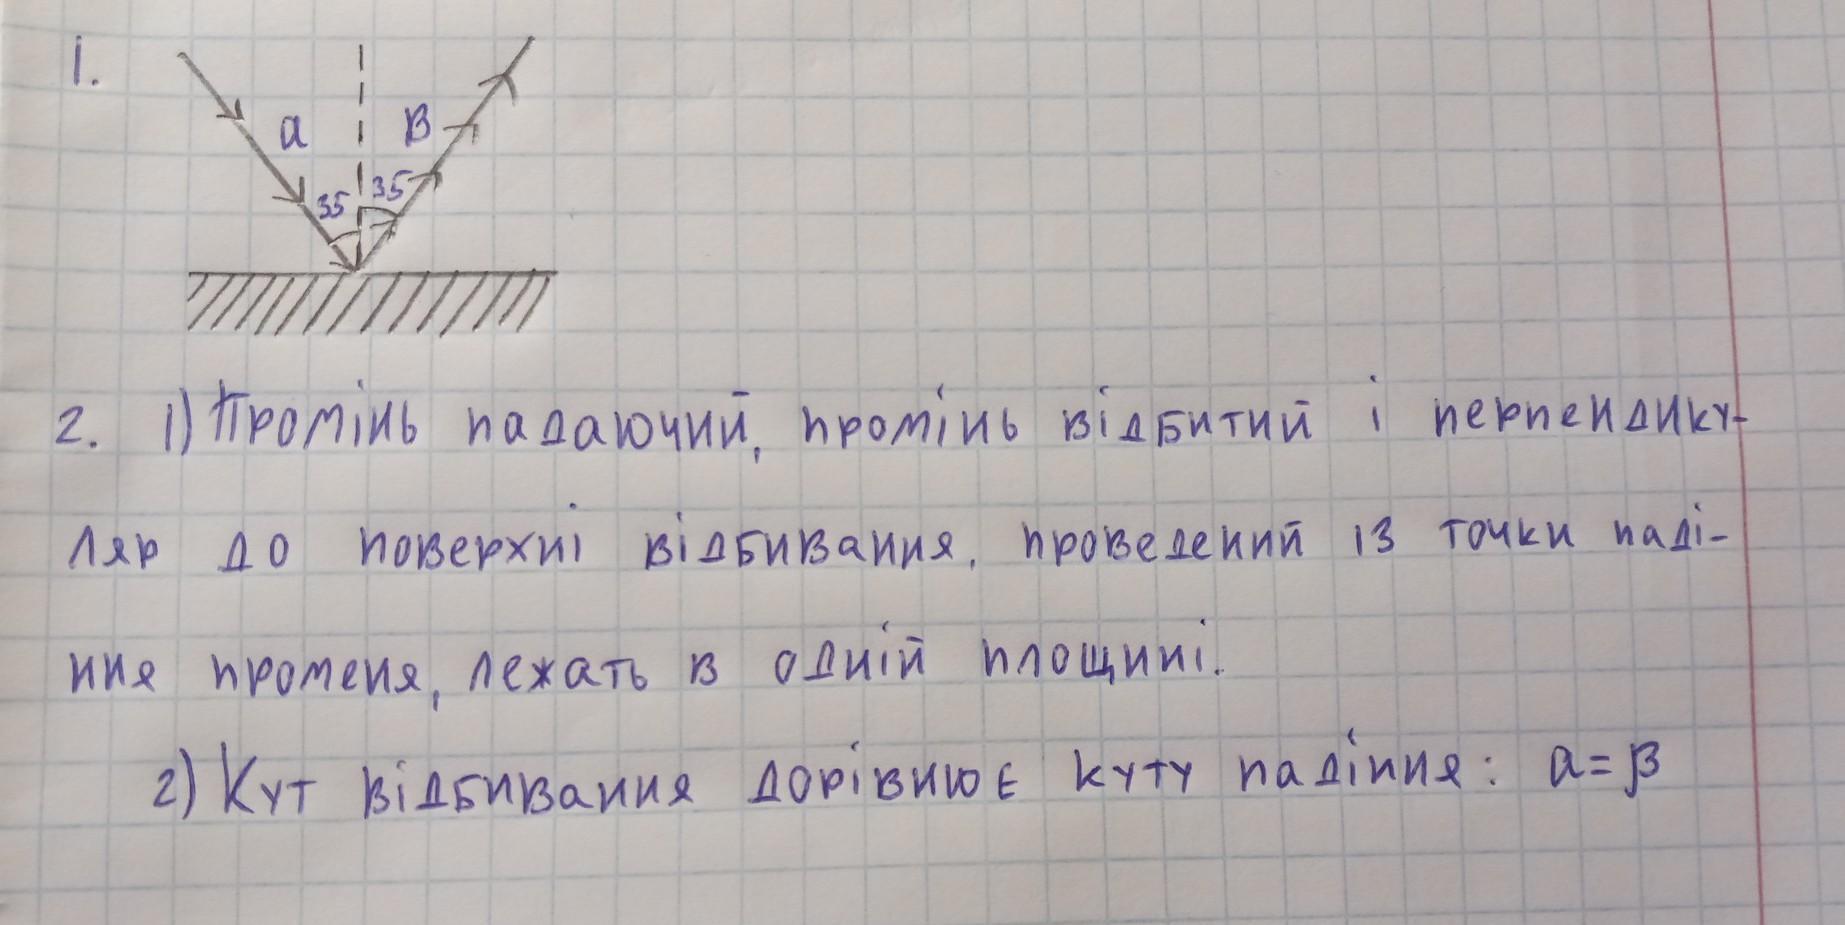 1.
a B
35 35
2. 1) Промінь падаючий, промінь відбитий і перпендику-
ляр до поверхні відбивання, проведений із точки паді-
ння променя, лежать в одній площині.
2) Кут відбивання дорівнює куту падіння: a=β